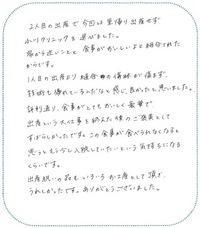 2人目の出産で今回は里帰り出産せず
小川クリニックを選びました。
家から近いことと食事がおいしいよと紹介された
からです。
1人目の出産より縫合の傷跡が痛まず、
技術も優れているんだなと感じ、良かったと思いました。
評判通り、食事がとてもおいしく豪華で
出産という大仕事を終えた後のご褒美として
すばらしかったです。この食事が食べられなくなると
思うともう少し入院していたいという気持ちになる
くらいです。
出産祝いの品もいろいろお土産として頂き、
うれしかったです。ありがとうございました。